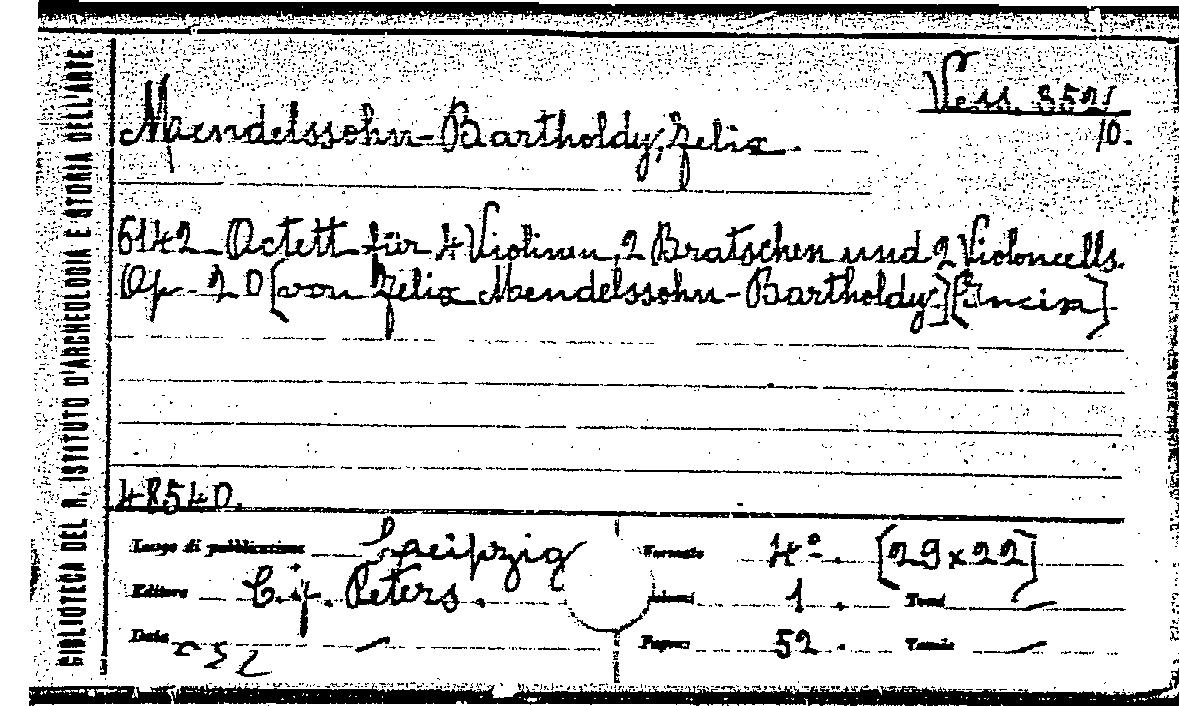 BIBLIOTECA DEL R. ISTITUTO D'ARCHEOLOGIA E STORIA DELL'ARTE
Vess. 352/
10.
Mendelssohn-Bartholdy, Felix.
6142 Octett für 4 Violinen, 2 Bratschen und 2 Violoncells.
Op. 20 [von Felix Mendelssohn-Bartholdy.]
48540.
Luogo di pubblicazione Leipzig
Formato 4°. [29x22]
Editore C. F. Peters.
Volumi 1. Tomi
Data
Pagine 52. Tavole